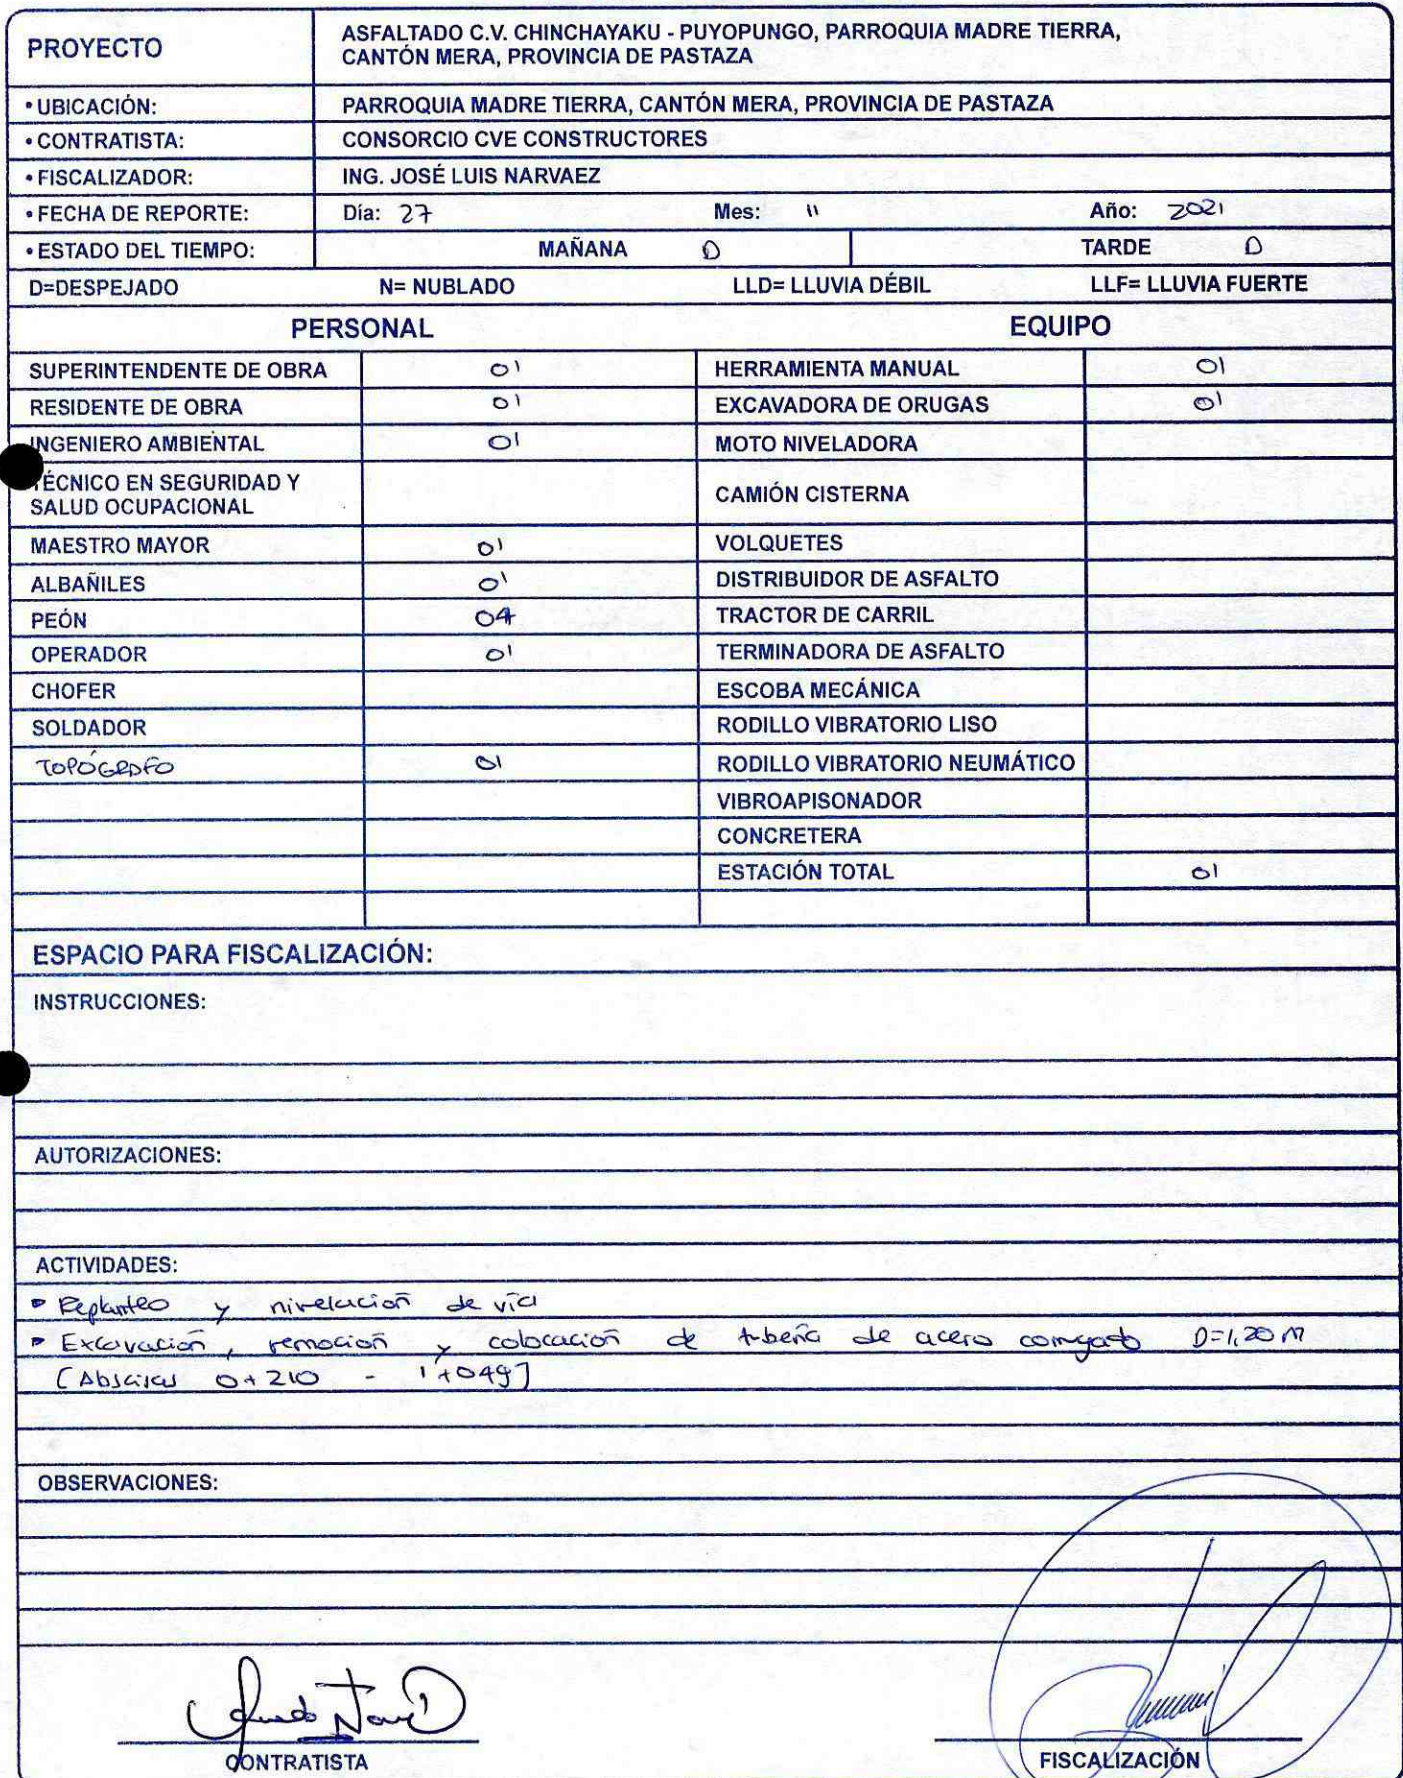 PROYECTO
ASFALTADO C.V. CHINCHAYAKU - PUYOPUNGO, PARROQUIA MADRE TIERRA,
CANTÓN MERA, PROVINCIA DE PASTAZA
• UBICACIÓN: PARROQUIA MADRE TIERRA, CANTÓN MERA, PROVINCIA DE PASTAZA
• CONTRATISTA: CONSORCIO CVE CONSTRUCTORES
• FISCALIZADOR: ING. JOSÉ LUIS NARVAEZ
• FECHA DE REPORTE: Día: 27 Mes: 11 Año: 2021
• ESTADO DEL TIEMPO: MAÑANA D TARDE D
D=DESPEJADO N= NUBLADO LLD= LLUVIA DÉBIL LLF= LLUVIA FUERTE
PERSONAL EQUIPO
SUPERINTENDENTE DE OBRA 01 HERRAMIENTA MANUAL 01
RESIDENTE DE OBRA 01 EXCAVADORA DE ORUGAS 01
INGENIERO AMBIENTAL 01 MOTO NIVELADORA
TÉCNICO EN SEGURIDAD Y
SALUD OCUPACIONAL CAMIÓN CISTERNA
MAESTRO MAYOR 01 VOLQUETES
ALBAÑILES 01 DISTRIBUIDOR DE ASFALTO
PEÓN 04 TRACTOR DE CARRIL
OPERADOR 01 TERMINADORA DE ASFALTO
CHOFER ESCOBA MECÁNICA
SOLDADOR RODILLO VIBRATORIO LISO
TOPÓGRAFO 01 RODILLO VIBRATORIO NEUMÁTICO
VIBROAPISONADOR
CONCRETERA
ESTACIÓN TOTAL 01
ESPACIO PARA FISCALIZACIÓN:
INSTRUCCIONES:
AUTORIZACIONES:
ACTIVIDADES:
• Replanteo y nivelación de vía
• Excavación, remoción y colocación de tubería de acero corrugado D=1,20 m
[Abscisas 0+210 - 1+049]
OBSERVACIONES:
CONTRATISTA FISCALIZACIÓN